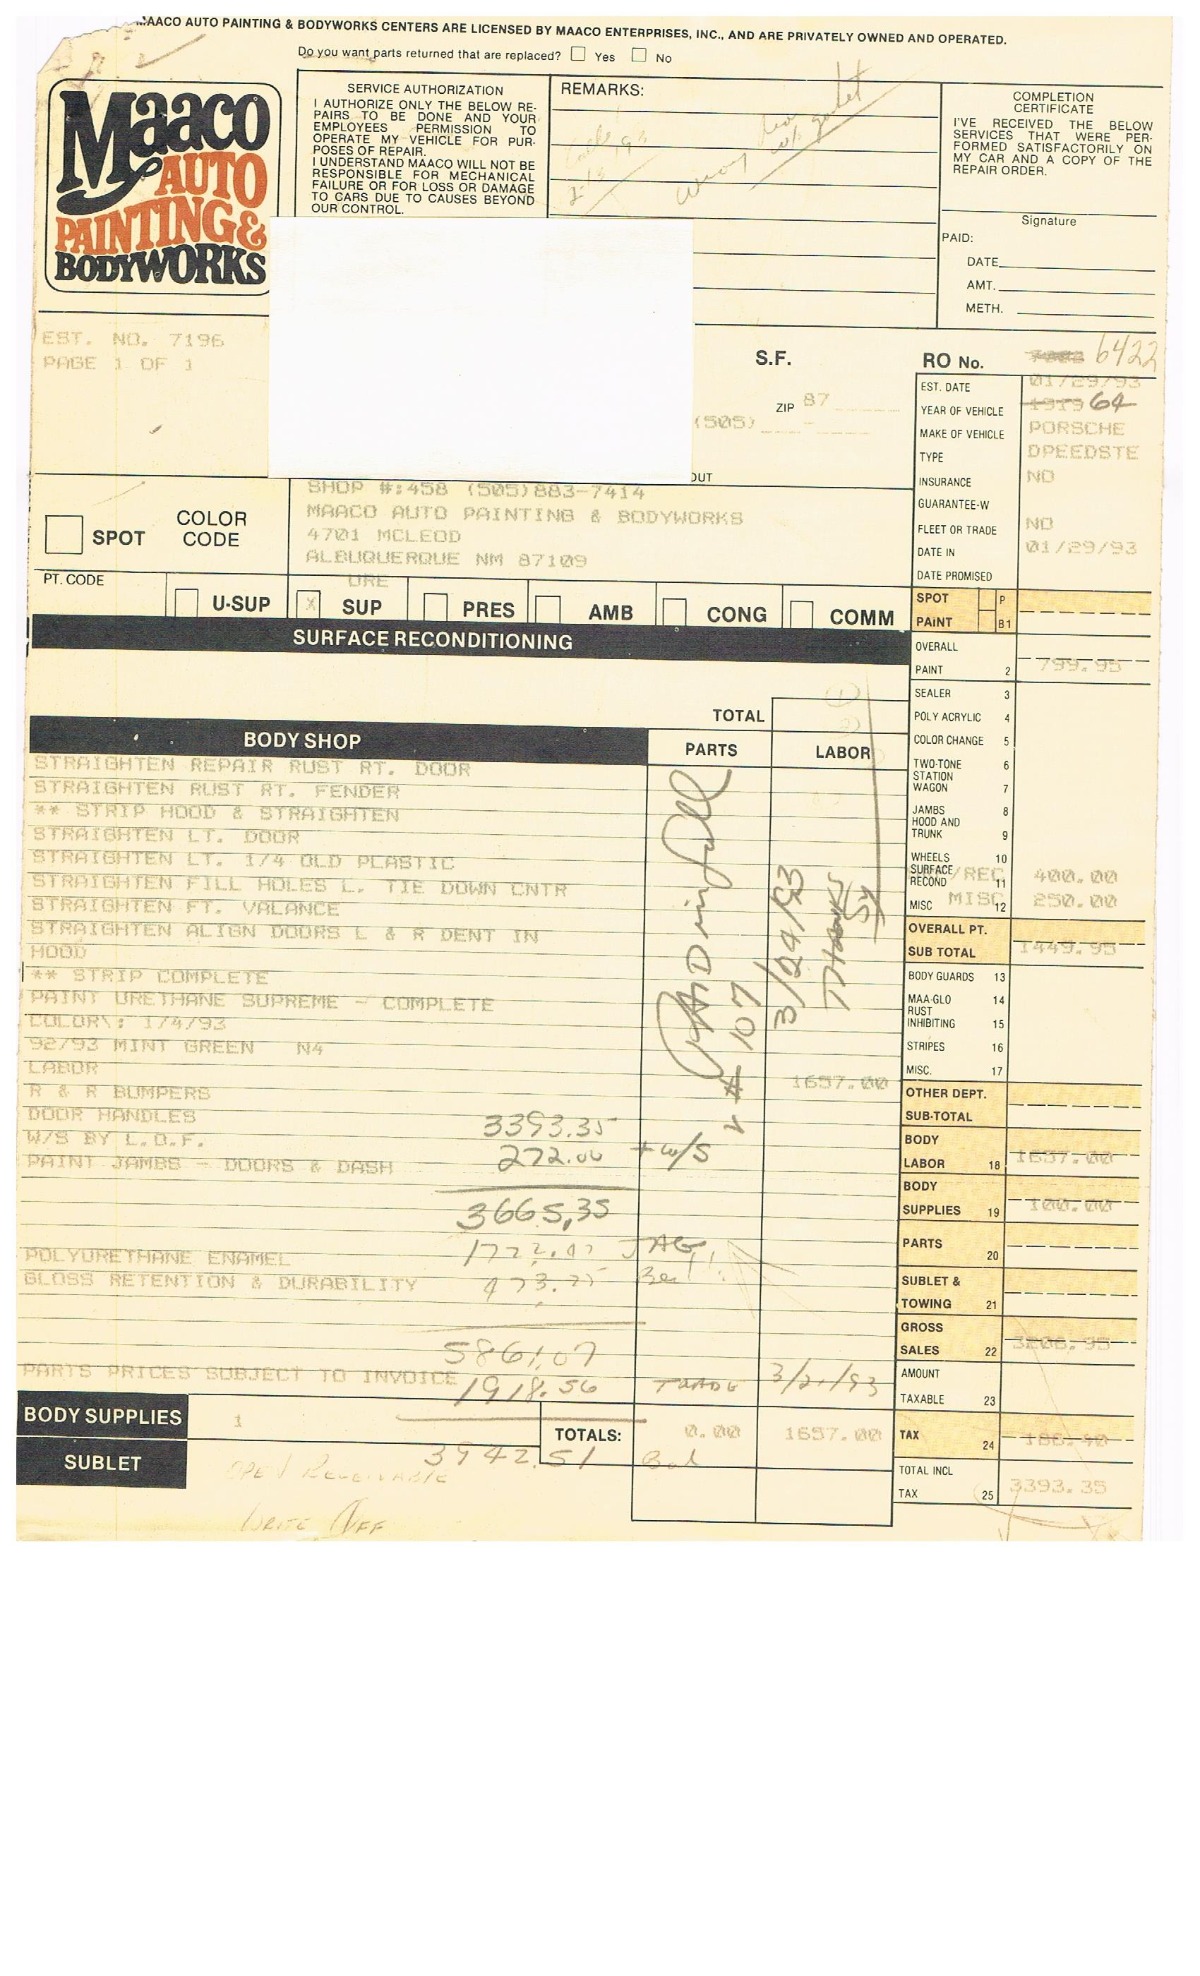 MAACO AUTO PAINTING & BODYWORKS CENTERS ARE LICENSED BY MAACO ENTERPRISES, INC., AND ARE PRIVATELY OWNED AND OPERATED.
Do you want parts returned that are replaced? Yes No
Maaco
AUTO
PAINTING &
BODYWORKS
SERVICE AUTHORIZATION
I AUTHORIZE ONLY THE BELOW RE-
PAIRS TO BE DONE AND YOUR
EMPLOYEES PERMISSION TO
OPERATE MY VEHICLE FOR PUR-
POSES OF REPAIR.
I UNDERSTAND MAACO WILL NOT BE
RESPONSIBLE FOR MECHANICAL
FAILURE OR FOR LOSS OR DAMAGE
TO CARS DUE TO CAUSES BEYOND
OUR CONTROL.
REMARKS:
COMPLETION
CERTIFICATE
I'VE RECEIVED THE BELOW
SERVICES THAT WERE PER-
FORMED SATISFACTORILY ON
MY CAR AND A COPY OF THE
REPAIR ORDER.
Signature
PAID:
DATE
AMT.
METH.
EST. NO. 7196
PAGE 1 OF 1
S.F.
ZIP 87
(505) -
OUT
RO No. 6422
EST. DATE 01/29/93
YEAR OF VEHICLE 1979 64
MAKE OF VEHICLE PORSCHE
TYPE DPEEDSTE
INSURANCE NO
GUARANTEE-W
FLEET OR TRADE NO
DATE IN 01/29/93
DATE PROMISED
SPOT
COLOR
CODE
SHOP #:458 (505)883-7414
MAACO AUTO PAINTING & BODYWORKS
4701 MCLEOD
ALBUQUERQUE NM 87109
PT. CODE
URE
U-SUP X SUP PRES AMB CONG COMM
SURFACE RECONDITIONING
TOTAL
BODY SHOP PARTS LABOR
STRAIGHTEN REPAIR RUST RT. DOOR
STRAIGHTEN RUST RT. FENDER
** STRIP HOOD & STRAIGHTEN
STRAIGHTEN LT. DOOR
STRAIGHTEN LT. 1/4 OLD PLASTIC
STRAIGHTEN FILL HOLES L. TIE DOWN CNTR
STRAIGHTEN FT. VALANCE
STRAIGHTEN ALIGN DOORS L & R DENT IN
HOOD
** STRIP COMPLETE
PAINT URETHANE SUPREME - COMPLETE
COLOR\: 1/4/93
92/93 MINT GREEN N4
LABOR 1657.00
R & R BUMPERS
DOOR HANDLES 3393.35
W/S BY L.O.F. 272.00 + w/s
PAINT JAMBS - DOORS & DASH
3665,35
POLYURETHANE ENAMEL 1722.97 JAG
GLOSS RETENTION & DURABILITY 473.75
5861.07
PARTS PRICES SUBJECT TO INVOICE
1918.56 TRADE 3/21/93
PAID in full
# 107
3/29/93
THANKS
Sy
BODY SUPPLIES 1
TOTALS: 0.00 1657.00
SUBLET
3942.51 Bal
OPEN RECEIVABLE
WRITE OFF
SPOT P
PAINT B1
OVERALL
PAINT 2 799.95
SEALER 3
POLY ACRYLIC 4
COLOR CHANGE 5
TWO-TONE 6
STATION
WAGON 7
JAMBS 8
HOOD AND
TRUNK 9
WHEELS 10
SURFACE
RECOND 11 /REC 400.00
MISC 12 MISC 250.00
OVERALL PT.
SUB TOTAL 1449.95
BODY GUARDS 13
MAA-GLO 14
RUST
INHIBITING 15
STRIPES 16
MISC. 17
OTHER DEPT.
SUB-TOTAL
BODY
LABOR 18 1657.00
BODY
SUPPLIES 19 100.00
PARTS
20
SUBLET &
TOWING 21
GROSS
SALES 22 3206.95
AMOUNT
TAXABLE 23
TAX
24 186.40
TOTAL INCL
TAX 25 3393.35